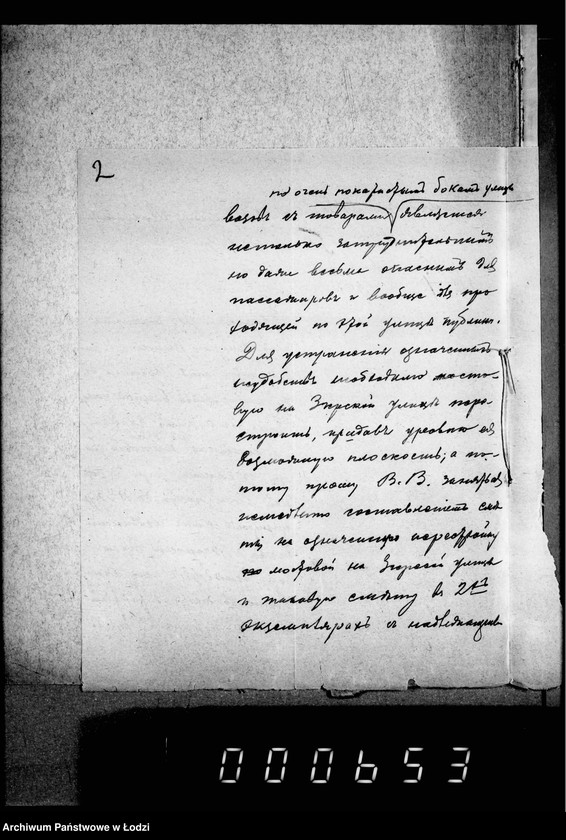 2
по очень покатистымъ бокамъ улицы
возовъ съ товарами является
нетолько затруднительнымъ
но даже весьма опаснымъ для
пассажировъ и вообще для про
ходящей по этой улицѣ публики.
Для устраненія означенныхъ
неудобствъ необходимо мосто-
вую на Згерской улицѣ пере-
строить, придавъ уровню ея
возможную плоскость; а по-
тому прошу В.В. заняться
немедленно составленіемъ смѣ
ты на означенную перестройку
мостовой на Згерской улицѣ
и таковую смѣту въ 2хъ
экземплярахъ съ надлежащею
000653
Archiwum Państwowe w Łodzi